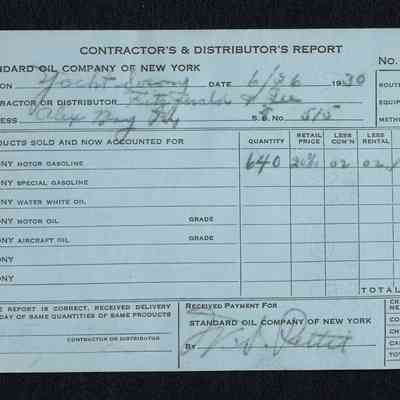 CONTRACTOR'S & DISTRIBUTOR'S REPORT
NDARD OIL COMPANY OF NEW YORK No.
ON Yacht DATE 6/26 1930 ROUT
RACTOR OR DISTRIBUTOR Fitzgerald & Lee EQUIP
ESS Alex Bay NY S. S. No. 515 METH
DUCTS SOLD AND NOW ACCOUNTED FOR QUANTITY RETAIL PRICE LESS COM'N LESS RENTAL
ONY MOTOR GASOLINE 640 02 02
ONY SPECIAL GASOLINE
ONY WATER WHITE OIL
ONY MOTOR OIL GRADE
ONY AIRCRAFT OIL GRADE
ONY
ONY
TOTAL
E REPORT IS CORRECT, RECEIVED DELIVERY
DAY OF SAME QUANTITIES OF SAME PRODUCTS
CONTRACTOR OR DISTRIBUTOR
RECEIVED PAYMENT FOR
STANDARD OIL COMPANY OF NEW YORK
W. S. Pettit
CO
CH
CA
TO